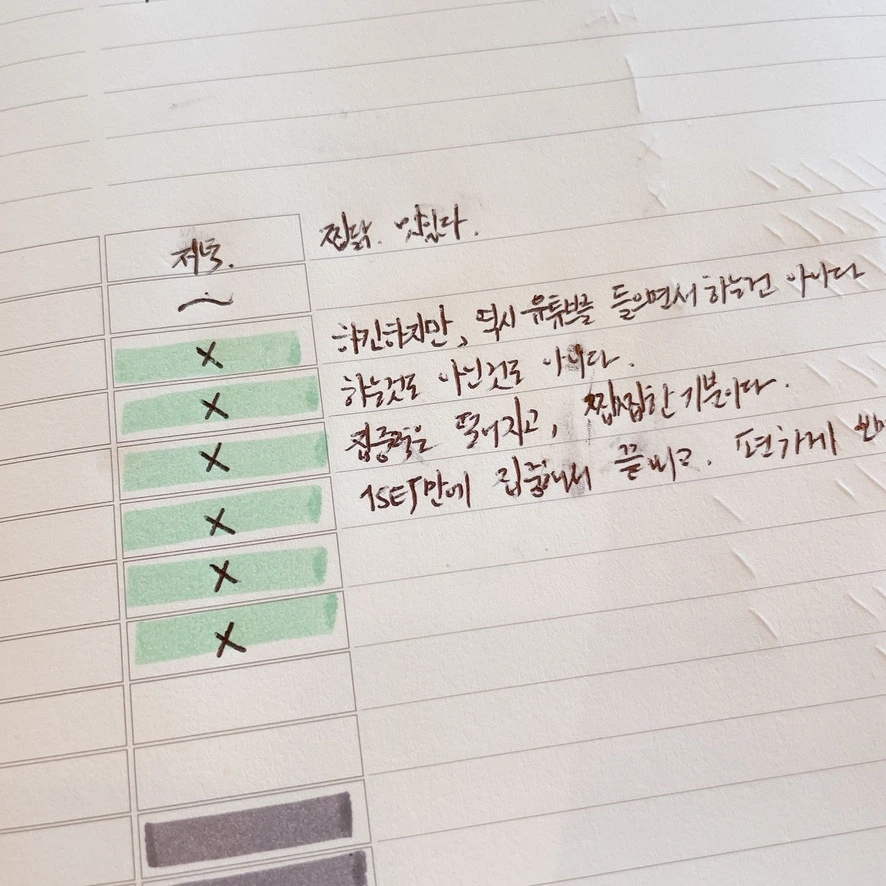 저녁. 찜닭. 맛있다.
X 하긴하지만, 역시 유튜브를 들으면서 하는건 아니다
X 하는것도 아닌것도 아니다.
X 집중력은 떨어지고, 찝찝한 기분이다.
X 1SET만에 집중해서 끝내고. 편하게
X
X